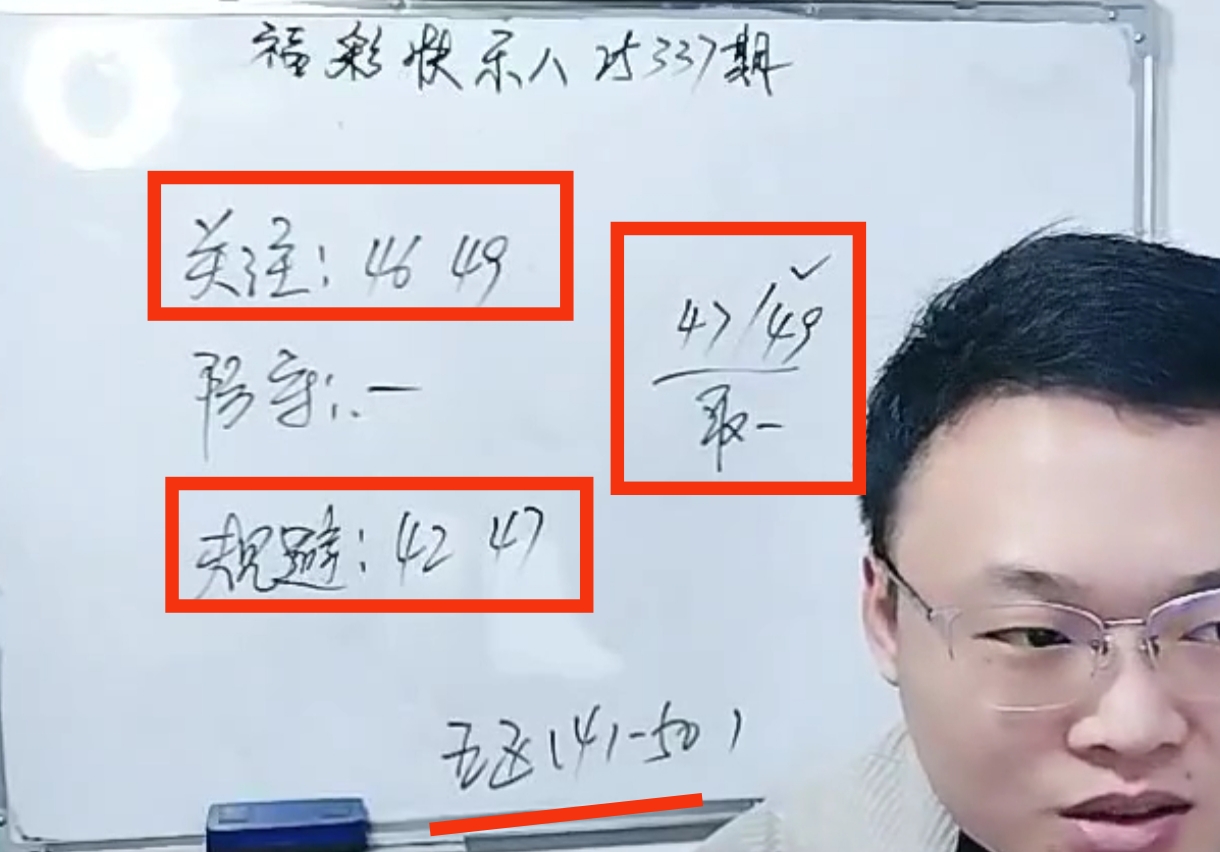 福彩快乐八25337期
关注：46 49
47/49
取一
防守：一
规避：42 47
五区(41-50)